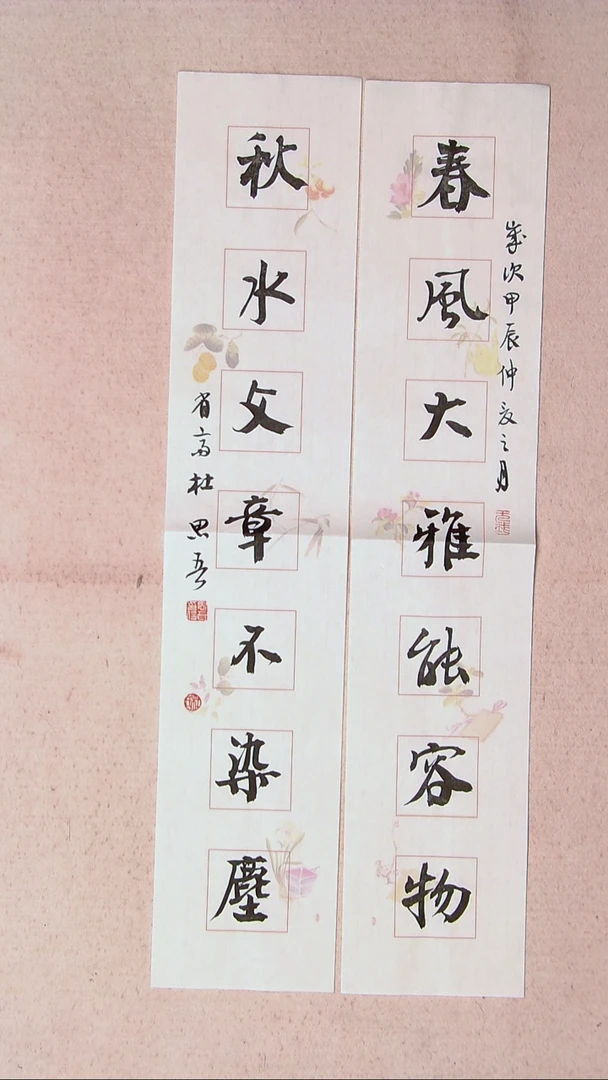 春風大雅能容物
歲次甲辰仲夏之月
秋水文章不染塵
省齋杜思吾